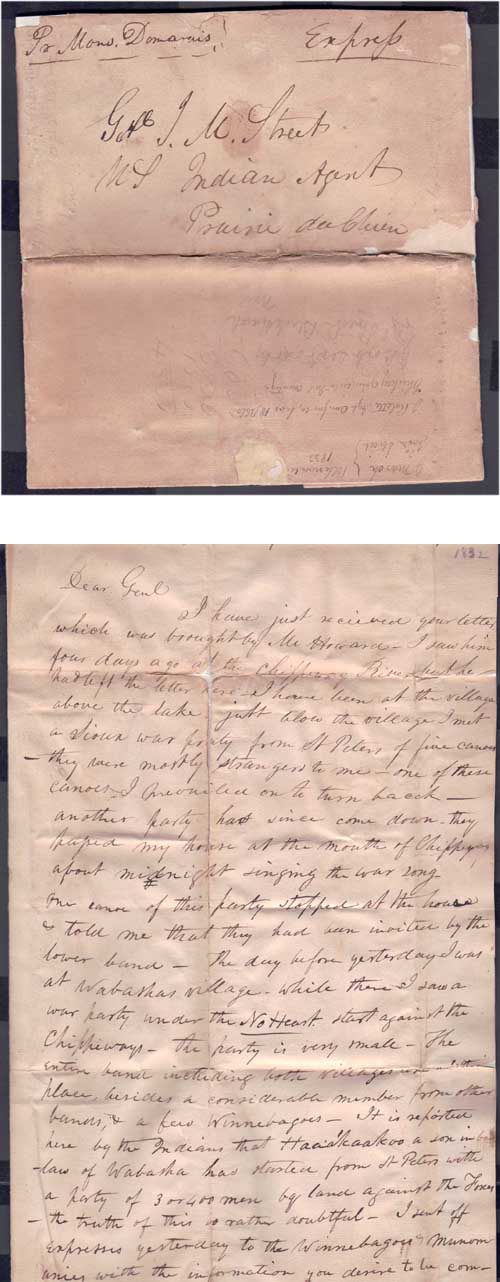 Pr Mons. Domarais
Express
Genl J. M. Street
US Indian Agent
Prairie du Chien
1832
1832
Dear Genl
I have just recieved your letter
which was brought by Mr Howard - I saw him
four days ago at the Chippeway River, but he
had left the letter here - I have been at the village
above the lake just blow the village I met
a Sioux war party from St Peters of five canoes
- they were mostly strangers to me - one of these
canoes I prevailed on to turn back -
another party has since come down - they
passed my house at the mouth of Chippeway
about midnight singing the war song
one canoe of this party stopped at the house
& told me that they had been invited by the
lower band - the day before yesterday I was
at Wabashas village - while there I saw a
war party under the No Heart start against the
Chippeways - the party is very small - The
entire band including both villages are at this
place, besides a considerable number from other
bands, & a few Winnebagoes - It is reported
here by the Indians that a son in
-law of Wabasha has started from St Peters with
a party of 3 or 400 men by land against the Foxes
- the truth of this is rather doubtful - I sent off
expresses yesterday to the Winnebagoes & Munom
onies with the information you desire to be com-